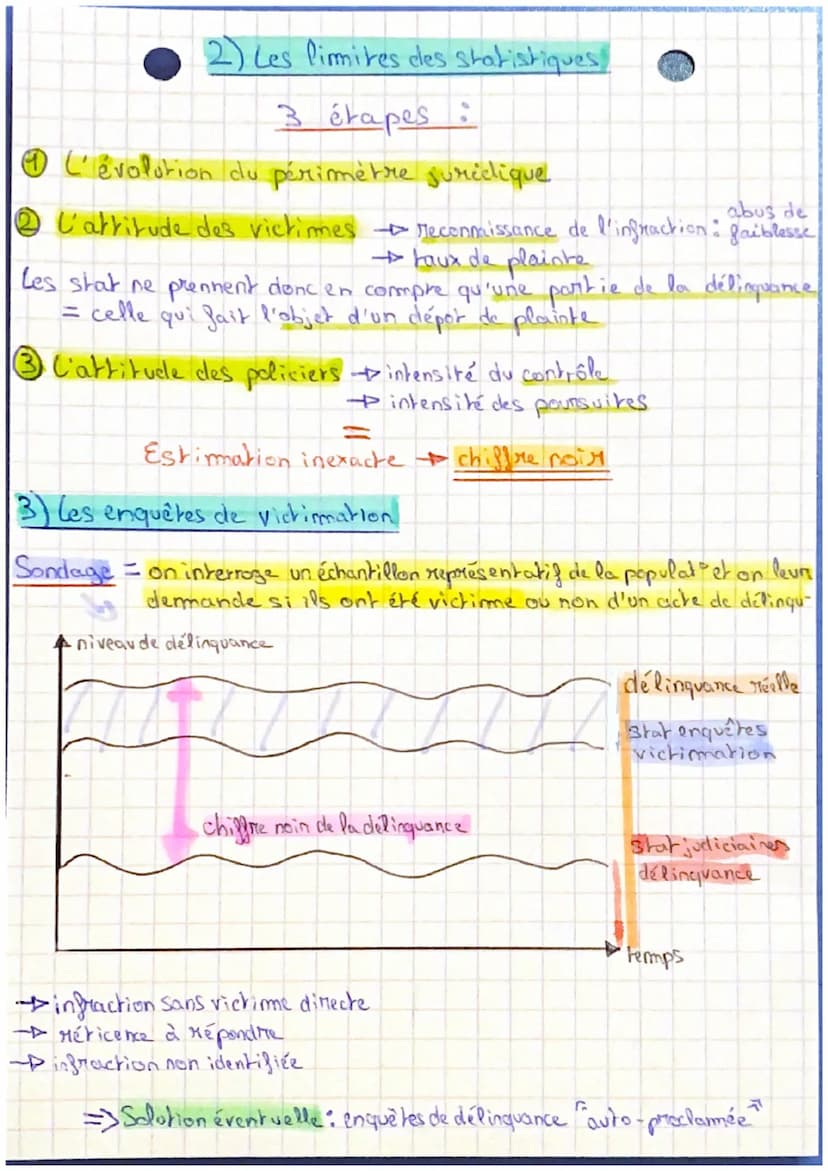 2) Les limites des statistiques
3 étapes :
① L'évolution du périmètre juridique
② L'attitude des victimes → reconnaissance de l'infraction : abus de faiblesse
→ taux de plainte
Les stat ne prennent donc en compte qu'une partie de la délinquance
= celle qui fait l'objet d'un dépôt de plainte
③ L'attitude des policiers → intensité du contrôle
→ intensité des poursuites
=
Estimation inexacte → chiffre noir
3) Les enquêtes de victimation
Sondage = on interroge un échantillon représentatif de la populat° et on leur
demande si ils ont été victime ou non d'un acte de délinqu-
niveau de délinquance
délinquance réelle
stat enquêtes
victimation
chiffre noir de la délinquance
stat judiciaires
délinquance
temps
→ infraction sans victime directe
→ réticence à répondre
→ infraction non identifiée
=> Solution éventuelle : enquêtes de délinquance "auto-proclamée"